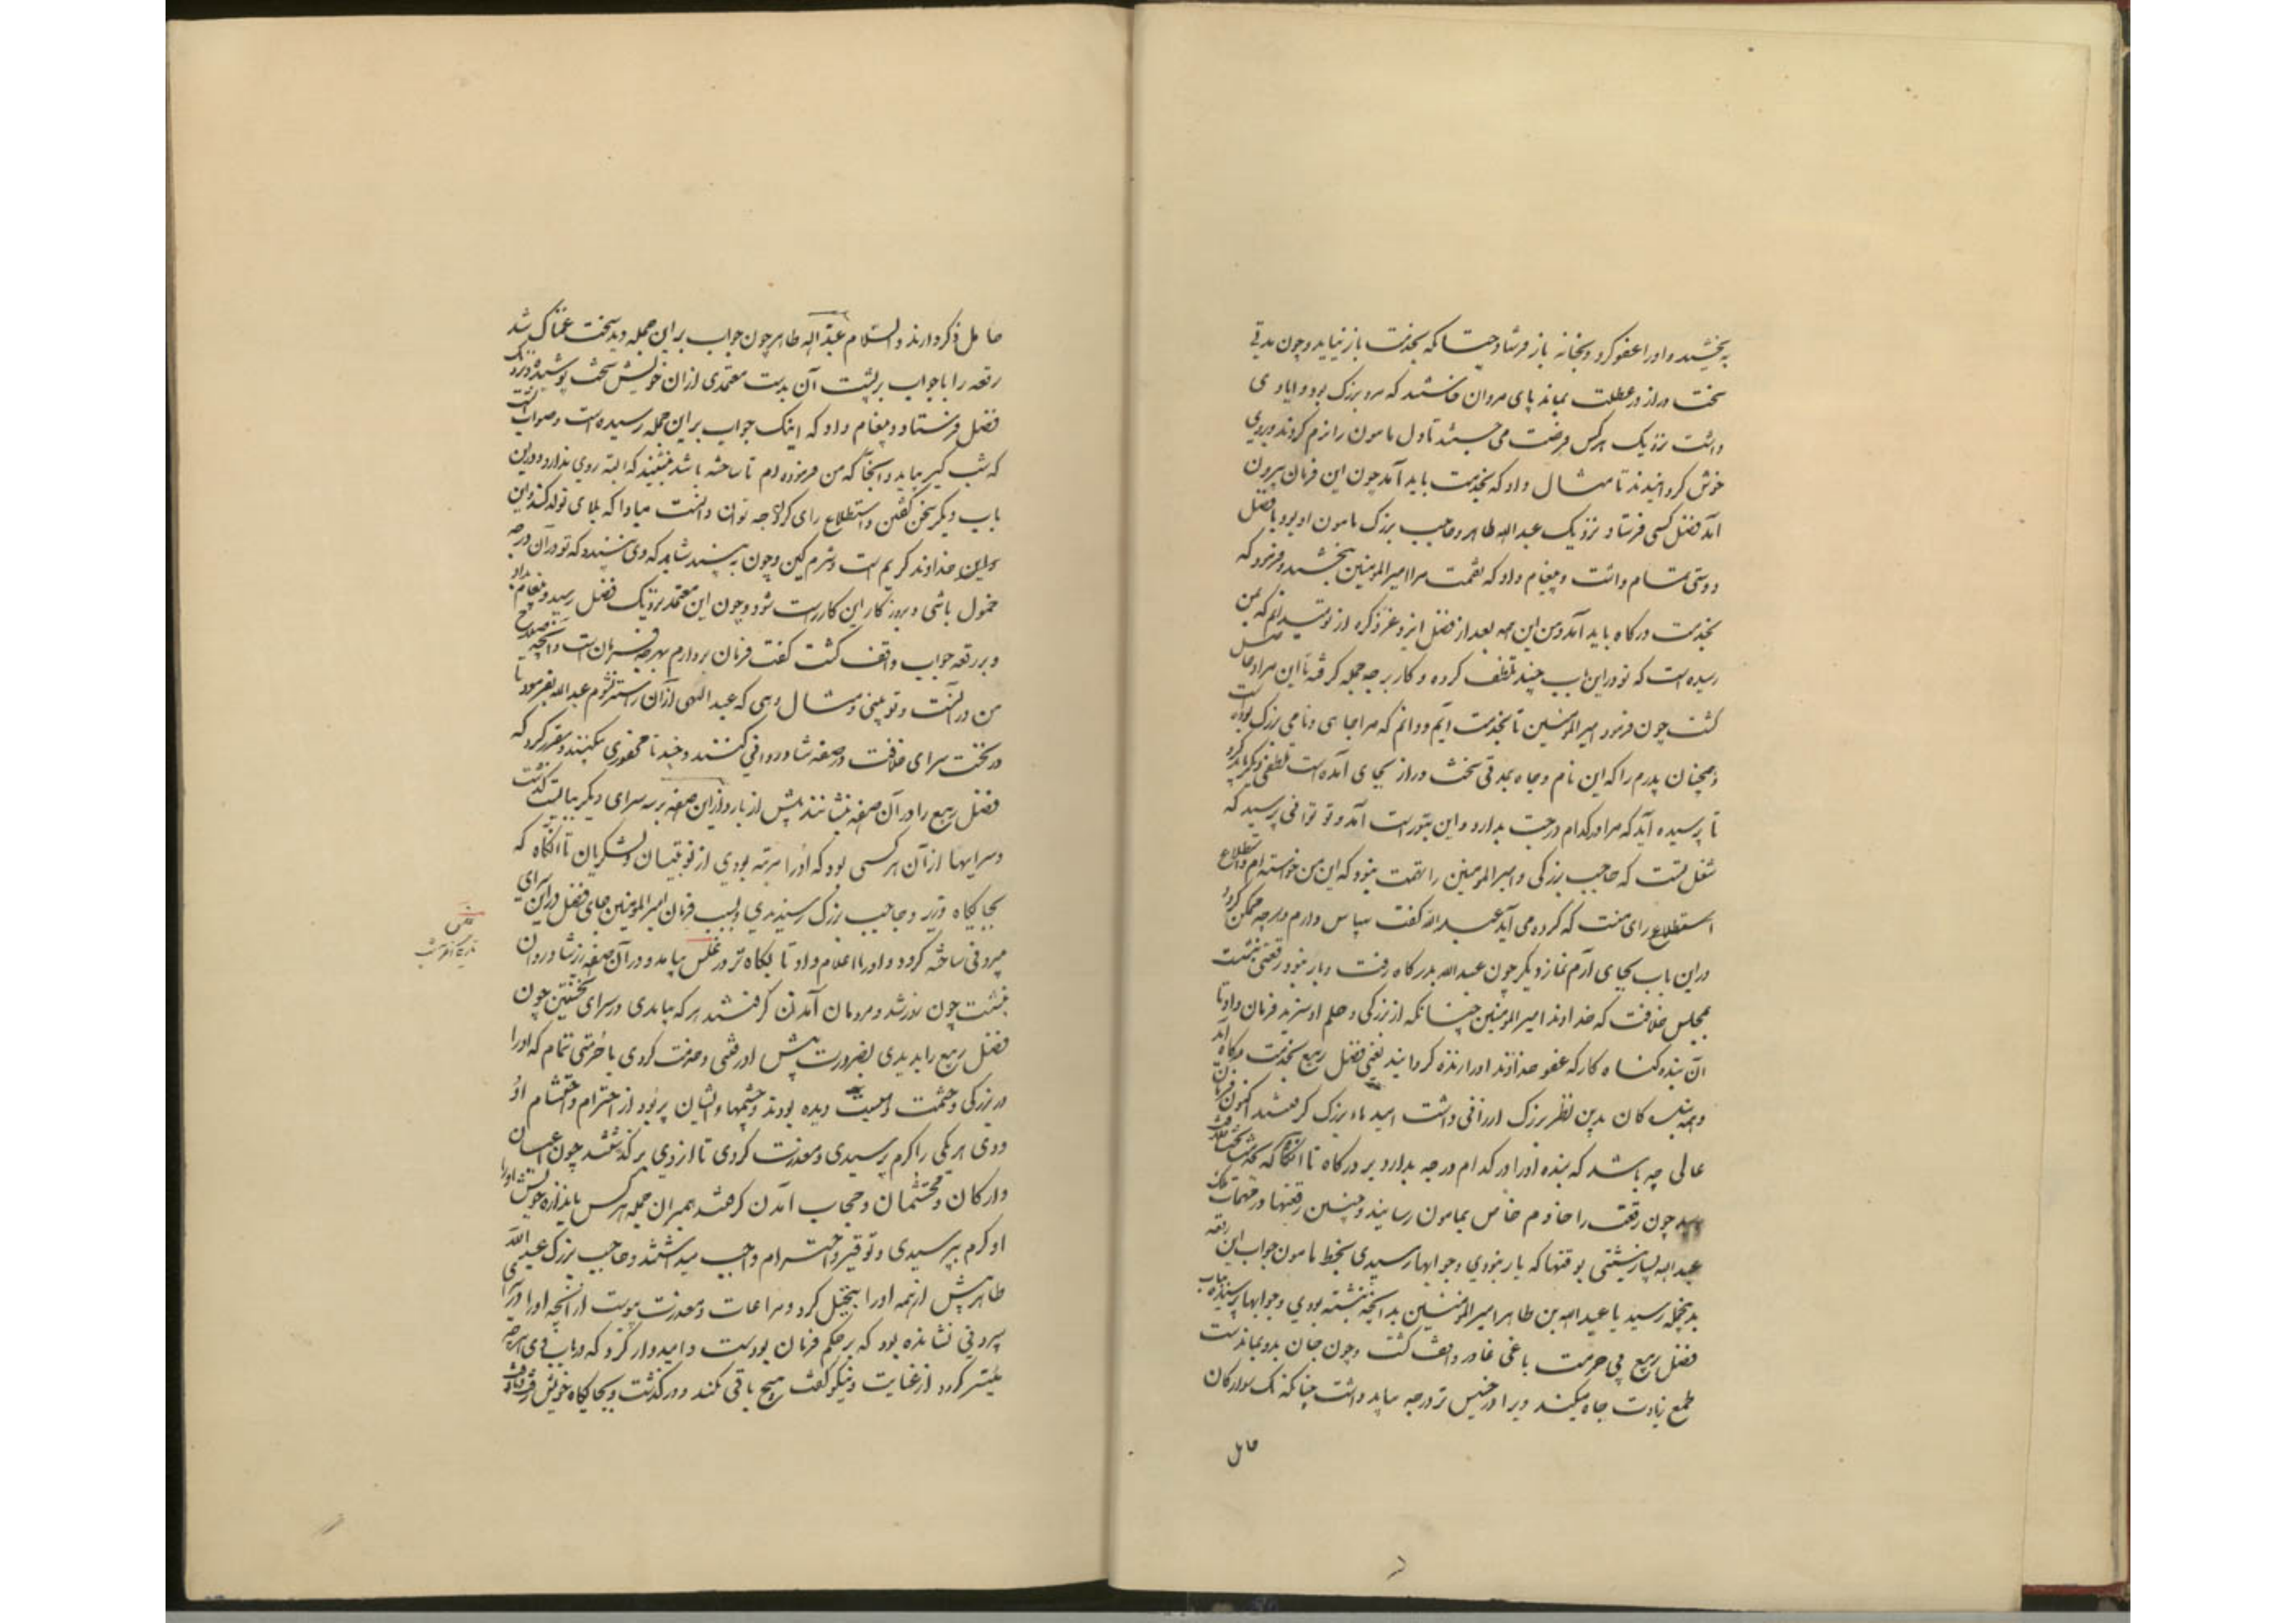 ببخشید و اورا عفو کرد و بخانه باز فرستاد چنانکه بخدمت باز نیاید و چون مدتی
سخت دراز در عطلت بماند پای مردان خاستند که مرد بزرگ بود و ایادی
داشت نزدیک هرکس فرصت می جستند تا دل مامون را نرم کردند و بروی
خوش کردانیدند تا مثال داد که بخدمت باید آمد چون این فرمان بیرون
آمد فضل کسی فرستاد نزدیک عبد الله طاهر و حاجب بزرگ مامون او بود با فضل
دوستی تمام داشت و پیغام داد که نقمت مرا امیر المومنین ببخشید و فرمود که
بخدمت درکاه باید آمد و من این همه بعد از فضل ایزد عز ذکره از تو میدانم که بمن
رسیده است که تو در این باب چند تلطف کرده و کار بر چه جمله کرفته تا این مراد حاصل
کشت چون فرمود امیر المومنین تا بخدمت آیم و دانم که مرا جاهی و نامی بزرک بوده است
و همچنان پدرم را که این نام و جاه بمدتی سخت دراز بجای آمده است تلطفی دیکر باید کرد
تا پرسیده آید که مرا در کدام درجت بدارد و این بتو راست آید و تو توانی پرسید که
شغل تست که حاجب بزرکی و امیر المومنین را نتوان نمود که این من خواسته ام و استطلاع
استطلاع رای منت که کرده می آید عبد الله کفت سپاس دارم و هرچه ممکن کردد
در این باب بجای آرم نماز دیکر چون عبد الله بدرکاه رفت و بار نبود رقعتی نبشت
بمجلس خلافت که خداوند امیر المومنین چنانکه از بزرکی و حلم او سزید فرمان داد تا
آن بنده کناه کار که عفو خداوند اورا زنده کردانید یعنی فضل ربیع بخدمت درکاه آید
و همه بندکان بدین نظر بزرک ارزانی داشت امیدهاء بزرک کرفتند اکنون فرمان
عالی چه باشد که بنده اورا در کدام درجه بدارد بر درکاه تا آنکاه که بخدمت
رسد چون رقعه را خادم خاص بمامون رسانید و چنین رقعتها در مهمات ملک
عبد الله بسیار نبشتی بوقتها که بار نبودی و جوابها رسیدی بخط مامون جواب این رقعه
بدینجمله رسید یا عبد الله بن طاهر امیر المومنین بدانچه نبشته بودی و جوابها پرسیده
فضل ربیع بی حرمت باغی غادر واقف کشت و چون جان بدو بماندست
طمع زیادت جاه میکند ویرا در خسیس تر درجه بباید داشت چنانکه یک سوارکان
خامل
خامل ذکر دارند و السلام عبد الله طاهر چون جواب بر این جمله دید سخت غمناک شد
رقعه را با جواب بر پشت آن بدست معتمدی از آن خویش سخت پوشیده نزدیک
فضل فرستاد و پیغام داد که اینک جواب بر این جمله رسیده است و صواب آنست
که شب کیر بیاید و آنجا که من فرموده ام تا ساخته باشند بنشیند که البته روی ندارد در این
باب دیکر سخن کفتن و استطلاع رای کردن چه توان دانست مبادا که بلای تولد کند و این
و این خداوند کریم است و شرم کین و چون ببیند شاید که وی نپسندد که تو در آن درجه
خمول باشی و بروزکار این کار راست شود و چون این معتمد نزدیک فضل رسید و پیغام بداد
و بر رقعه جواب واقف کشت کفت فرمان بردارم بهرچه فرمان است و آنچه صلاح
من در آنست و تو بینی و مثال دهی که عبد اللهی از آن راستر نشوم عبد الله بفرمود تا
در نخست سرای خلافت در صفه شادروانی کشند و چند تا محفوری بیفکنند و مقرر کرد که
فضل ربیع را در آن صفه بنشانند پیش از بار و از این صفه بر سه سرای دیکر ببایست کذشت
و سرایها از آن هر کسی بود که اورا مرتبه بودی از نوبتیان و لشکریان تا آنکاه که
بجایکاه وزیر و حاجب بزرک رسیدندی و بسبب فرمان امیر المومنین جای فضل در این سرای
بیرونی ساخته کرد و اورا اعلام داد تا بکاه تر در غلس بیامد و در آن صفه زیر شادروان
بنشست چون روز شد و مردمان آمدن کرفتند هر که بیامدی در سرای نخستین چون
فضل ربیع را بدیدی بضرورت پیش او رفتی و خدمت کردی با حرمتی تمام که اورا
در بزرکی و حشمت و هیبت دیده بودند و چشمهاء ایشان پر بود از احترام و احتشام او
و وی هریکی را کرم پرسیدی و معذرت کردی تا از وی بر کذشتند چون اعیان
و ارکان و محتشمان و حجاب آمدن کرفتند همبران جمله هر کس باندازه خویش اورا
او کرم بپرسیدی و توقیر و احترام واجب میداشتند و حاجب بزرک عبد الله
طاهر پیش از همه اورا تبجیل کرد و مراعات و معذرت پیوست از آنچه اورا در سرای
بیرونی نشانده بود که بر حکم فرمان بودست و امیدوار کرد که در باب وی هر چه
میسر کردد از عنایت و نیکو کفت هیچ باقی نکند و در کذشت و بجایکاه خویش
غلس
تاریکی آخر شب